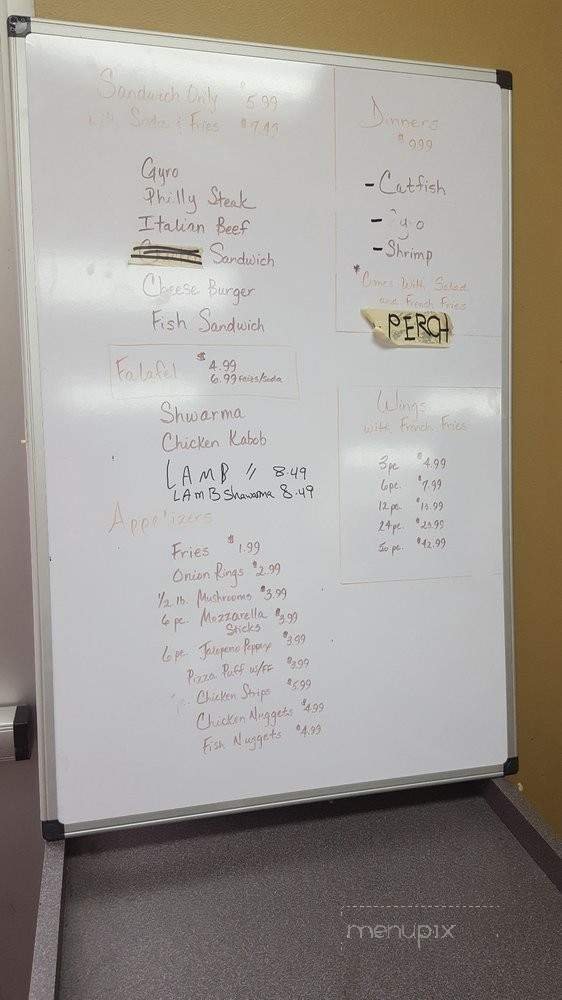 Sandwich Only $5.99
with Soda & Fries $7.49
Gyro
Philly Steak
Italian Beef
Sandwich
Cheese Burger
Fish Sandwich
Falafel $4.99
6.99 Fries/Soda
Shwarma
Chicken Kabob
LAMB 11 8.49
LAMB Shawarma 8.49
Appetizers
Fries $1.99
Onion Rings $2.99
1/2 lb. Mushrooms $3.99
6 pc. Mozzarella Sticks $3.99
6 pc. Jalapeno Pepper $3.99
Pizza Puff w/FF $3.99
Chicken Strips $5.99
Chicken Nuggets $4.99
Fish Nuggets $4.99
Dinners
$999
- Catfish
- Gyro
- Shrimp
*Comes With Salad
and French Fries
PERCH
Wings
with French Fries
3 pc $4.99
6 pc. $7.99
12 pc.
24 pc.
50 pc. $42.99
menupix